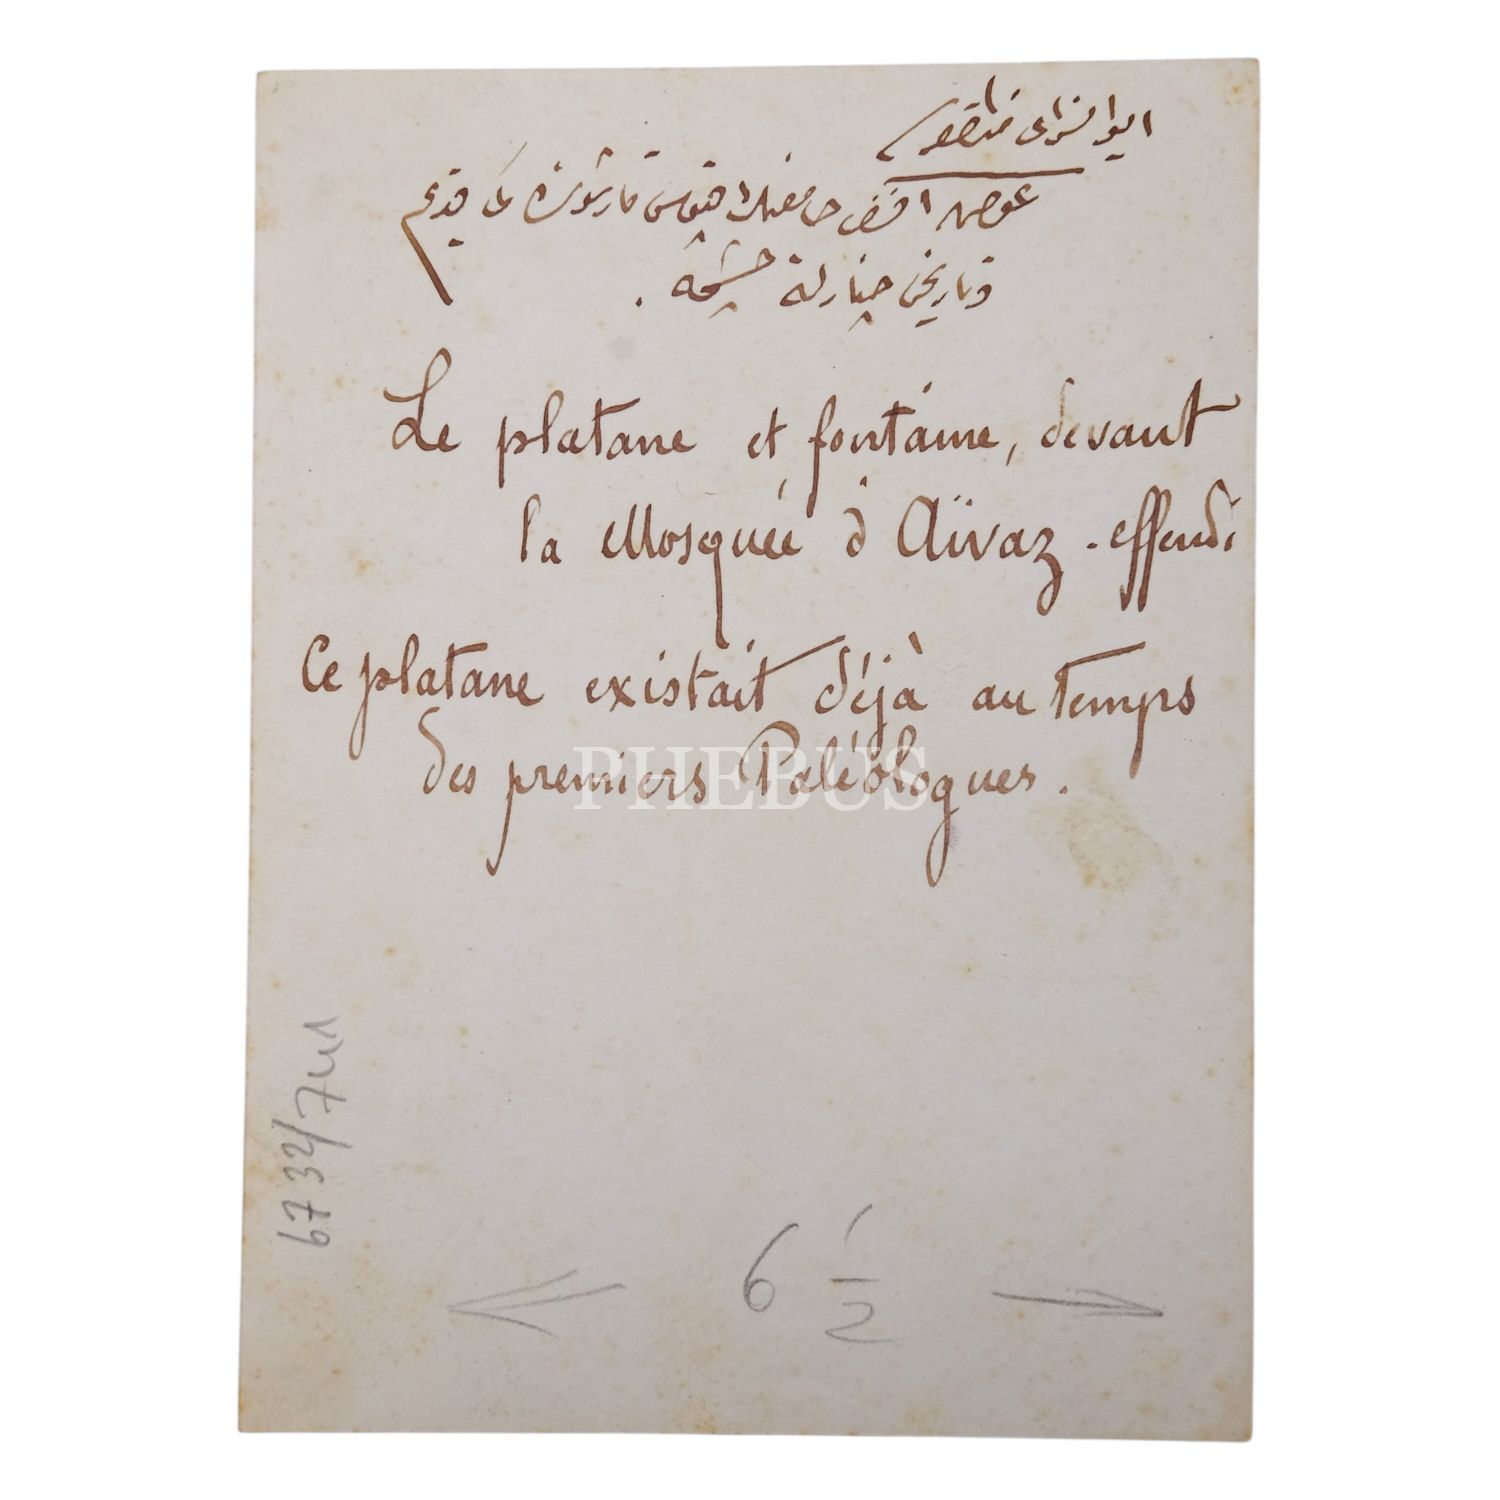 ایوانسرای
عوض افندی جامعنك قارشوسنده كی قدیم
و تاریخی چنارله چشمه .
Le platane et fontaine, devant
la Mosquée d'Aïvaz-effendi
Ce platane existait déjà au temps
des premiers Paléologues.
PHEBUS
6732/7
6 1/2